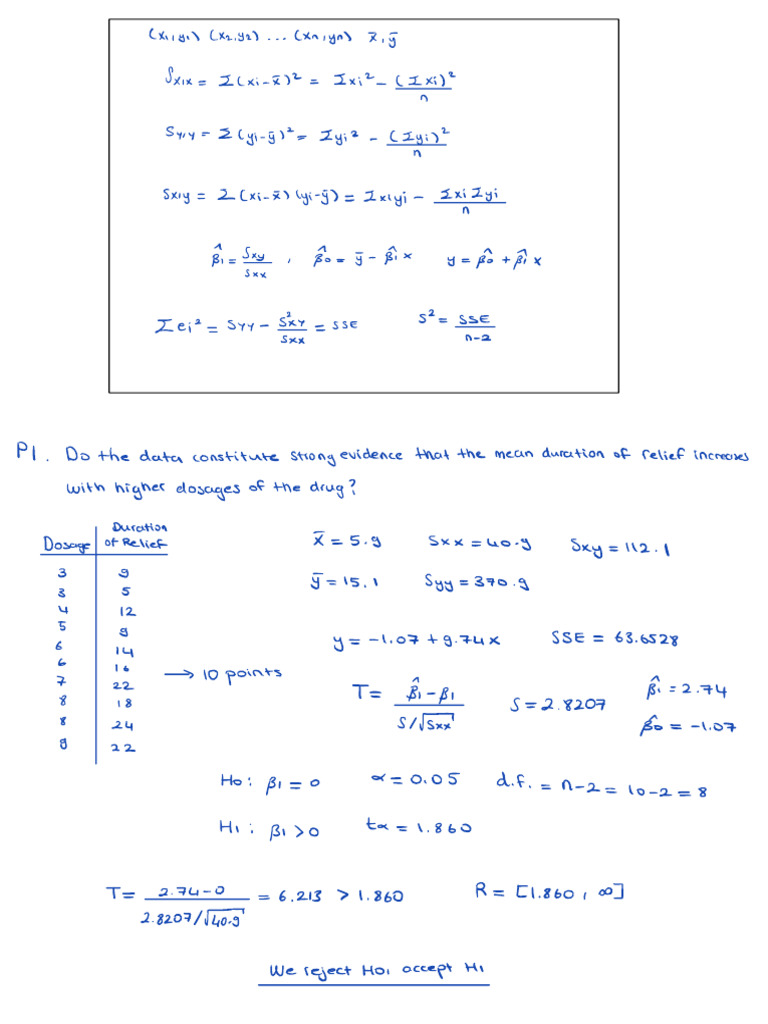 (x1,y1) (x2,y2) ... (xn,yn) x̄,ȳ
Sx,x = Σ(xi-x̄)² = Σxi² - (Σxi)²/n
Sy,y = Σ(yi-ȳ)² = Σyi² - (Σyi)²/n
Sx,y = Σ(xi-x̄)(yi-ȳ) = Σxiyi - ΣxiΣyi/n
β̂1 = Sxy/Sxx , β̂0 = ȳ - β̂1x y = β̂0 + β̂1x
Σei² = Syy - S²xy/Sxx = SSE S² = SSE/n-2
P1. Do the data constitute strong evidence that the mean duration of relief increases
with higher dosages of the drug?
Dosage Duration of Relief
3 9
3 5
4 12
5 9
6 14
6 16
7 22
8 18
8 24
9 22
→ 10 points
x̄ = 5.9 Sxx = 40.9 Sxy = 112.1
ȳ = 15.1 Syy = 370.9
y = -1.07 + 9.74x SSE = 63.6528
T = β̂1-β1 / S/√Sxx S = 2.8207 β̂1 = 2.74
β̂0 = -1.07
H0: β1 = 0 α = 0.05 d.f. = n-2 = 10-2 = 8
H1: β1 > 0 tα = 1.860
T = 2.74-0 / 2.8207/√40.9 = 6.213 > 1.860 R = [1.860, ∞]
We reject H0, accept H1